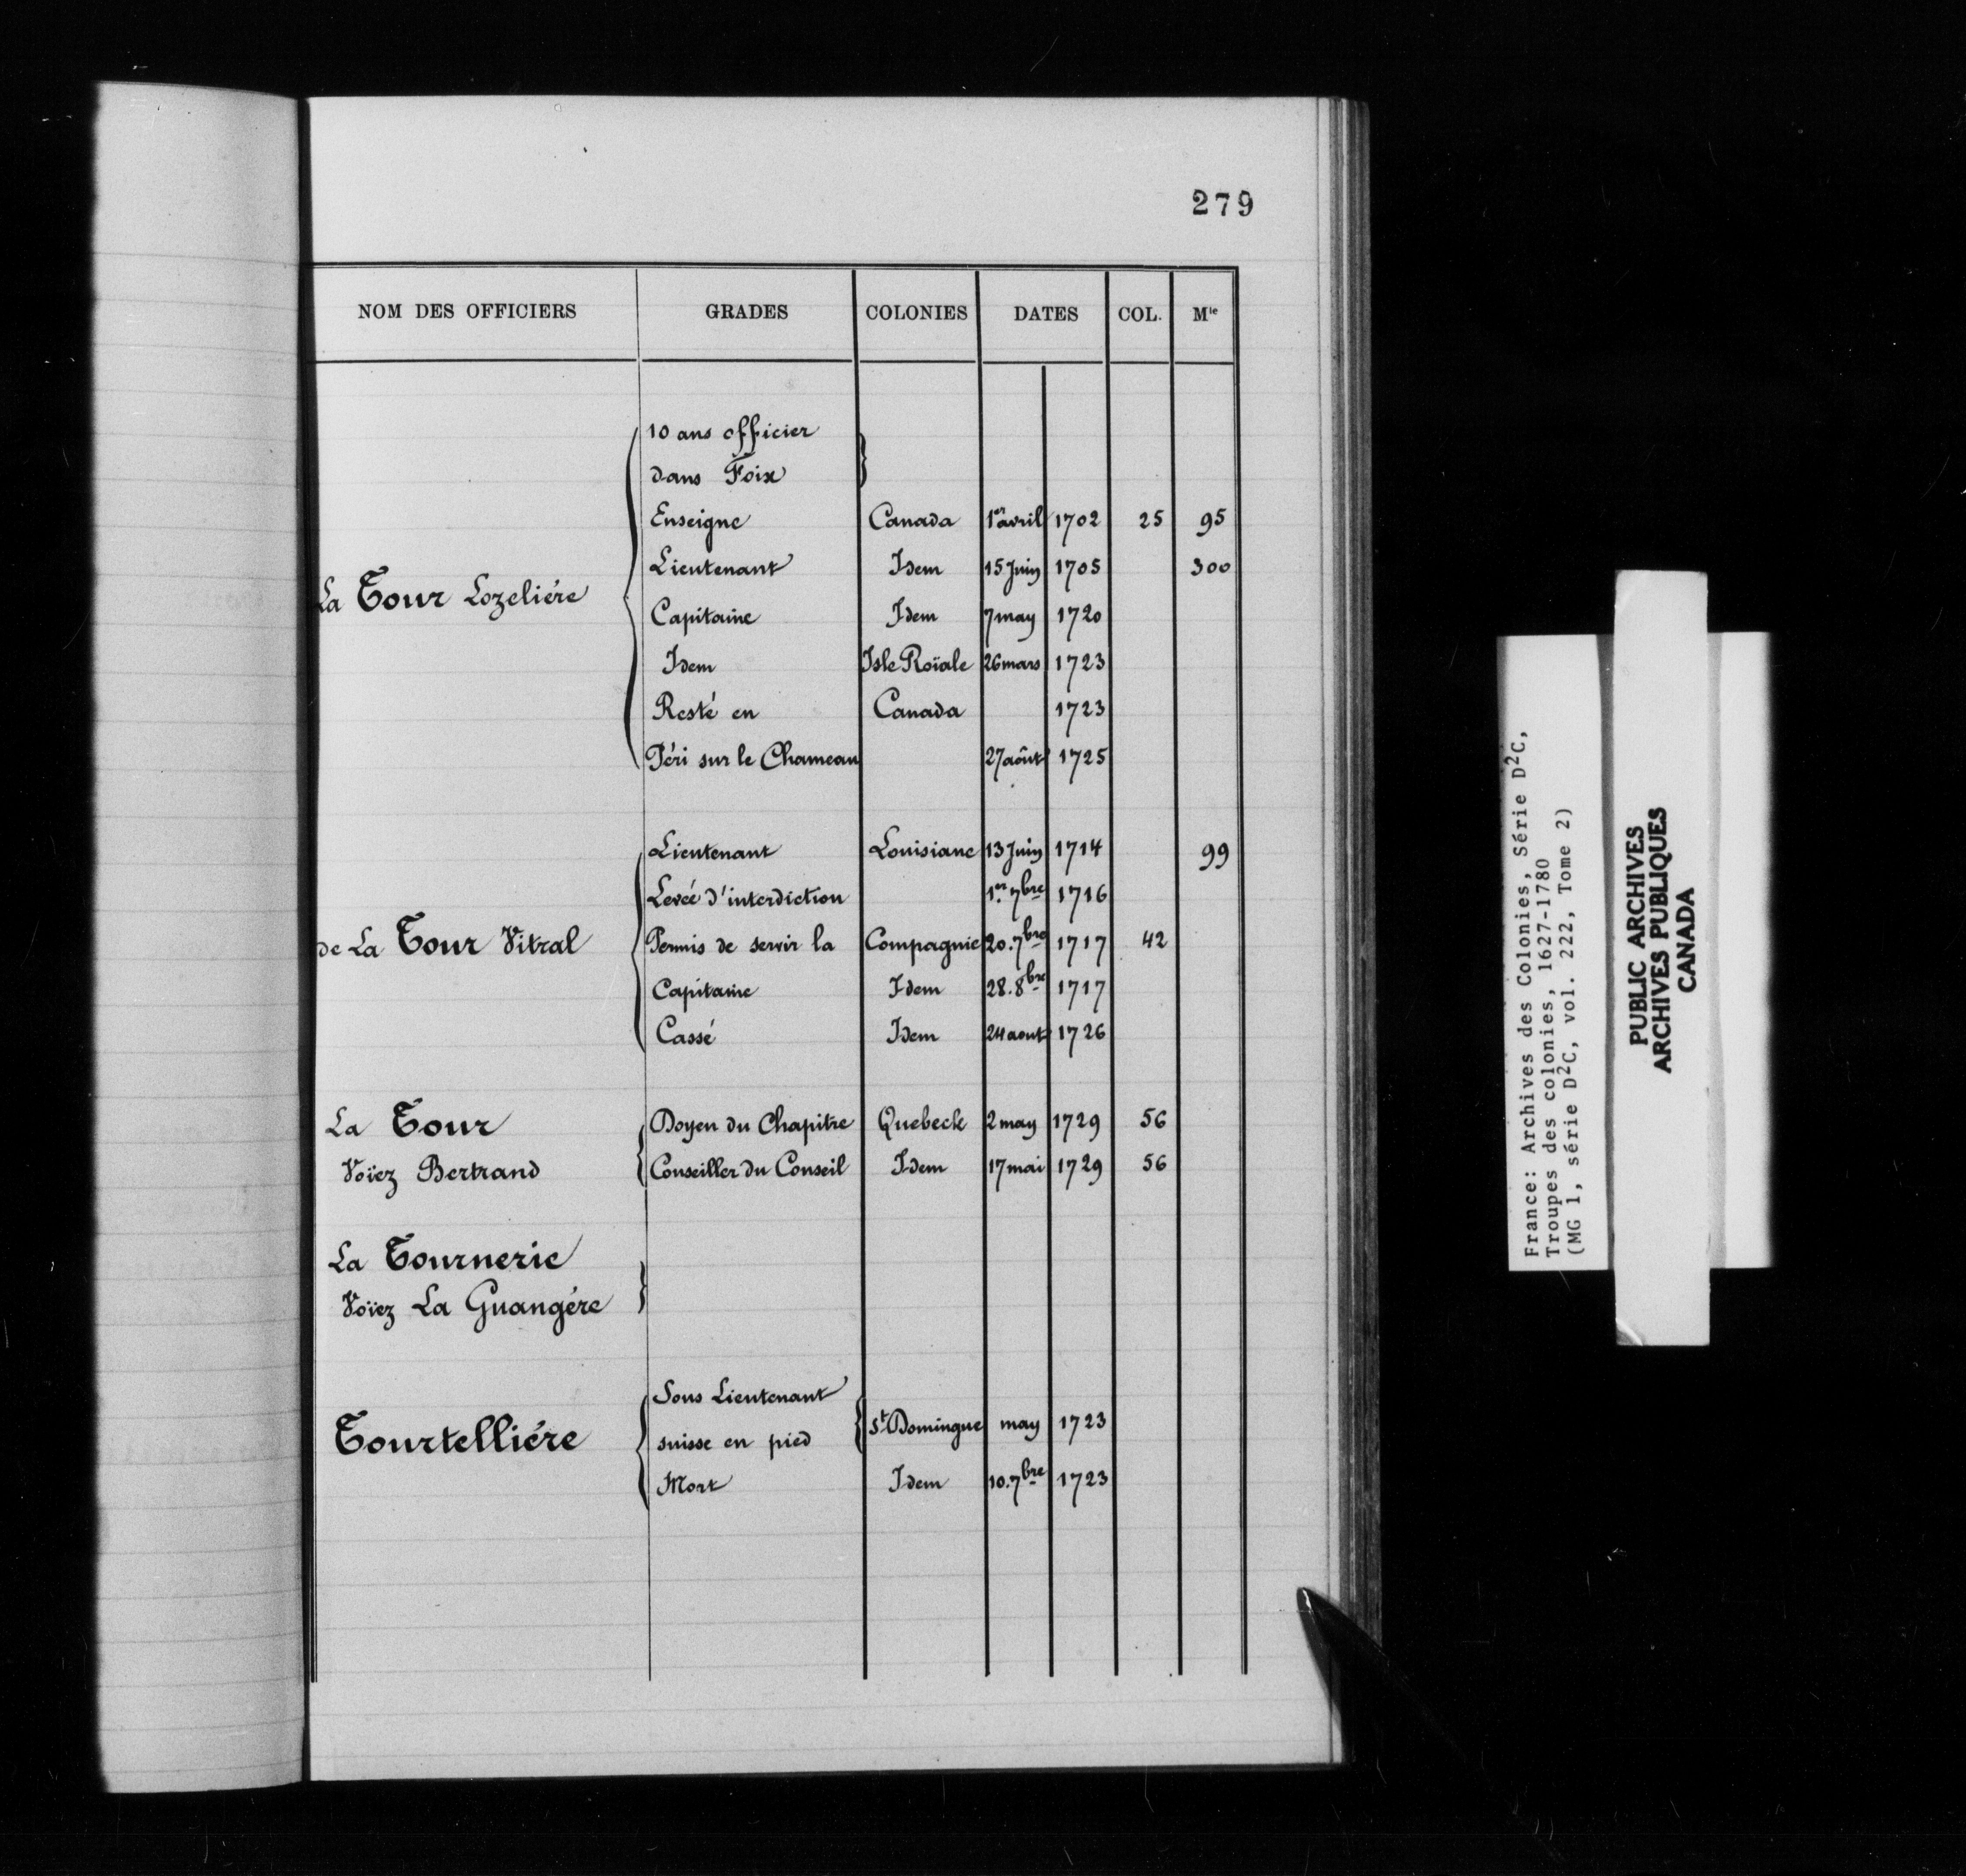 279
NOM DES OFFICIERS GRADES COLONIES DATES COL. Mle
10 ans officier
dans Foix
Enseigne Canada 1er avril 1702 25 95
Lieutenant Idem 15 Juin 1705 300
La Tour Lozeliére
Capitaine Idem 7 may 1720
Idem Isle Roïale 26 mars 1723
Resté en Canada 1723
Péri sur le Chameau 27 août 1725
Lieutenant Louisiane 13 Juin 1714 99
Levée d'interdiction 1er 7bre 1716
de La Tour Vitral Permis de servir la Compagnie 20. 7bre 1717 42
Capitaine Idem 28. 8bre 1717
Cassé Idem 24 aout 1726
La Tour Doyen du Chapitre Quebeck 2 may 1729 56
Voïez Bertrand Conseiller du Conseil Idem 17 mai 1729 56
La Tournerie
Voïez La Guangére
Sous Lieutenant
Tourtelliére suisse en pied St Domingue may 1723
Mort Idem 10. 7bre 1723
France: Archives des Colonies, Série D2C,
Troupes des colonies, 1627-1780
(MG 1, série D2C, vol. 222, Tome 2)
PUBLIC ARCHIVES
ARCHIVES PUBLIQUES
CANADA